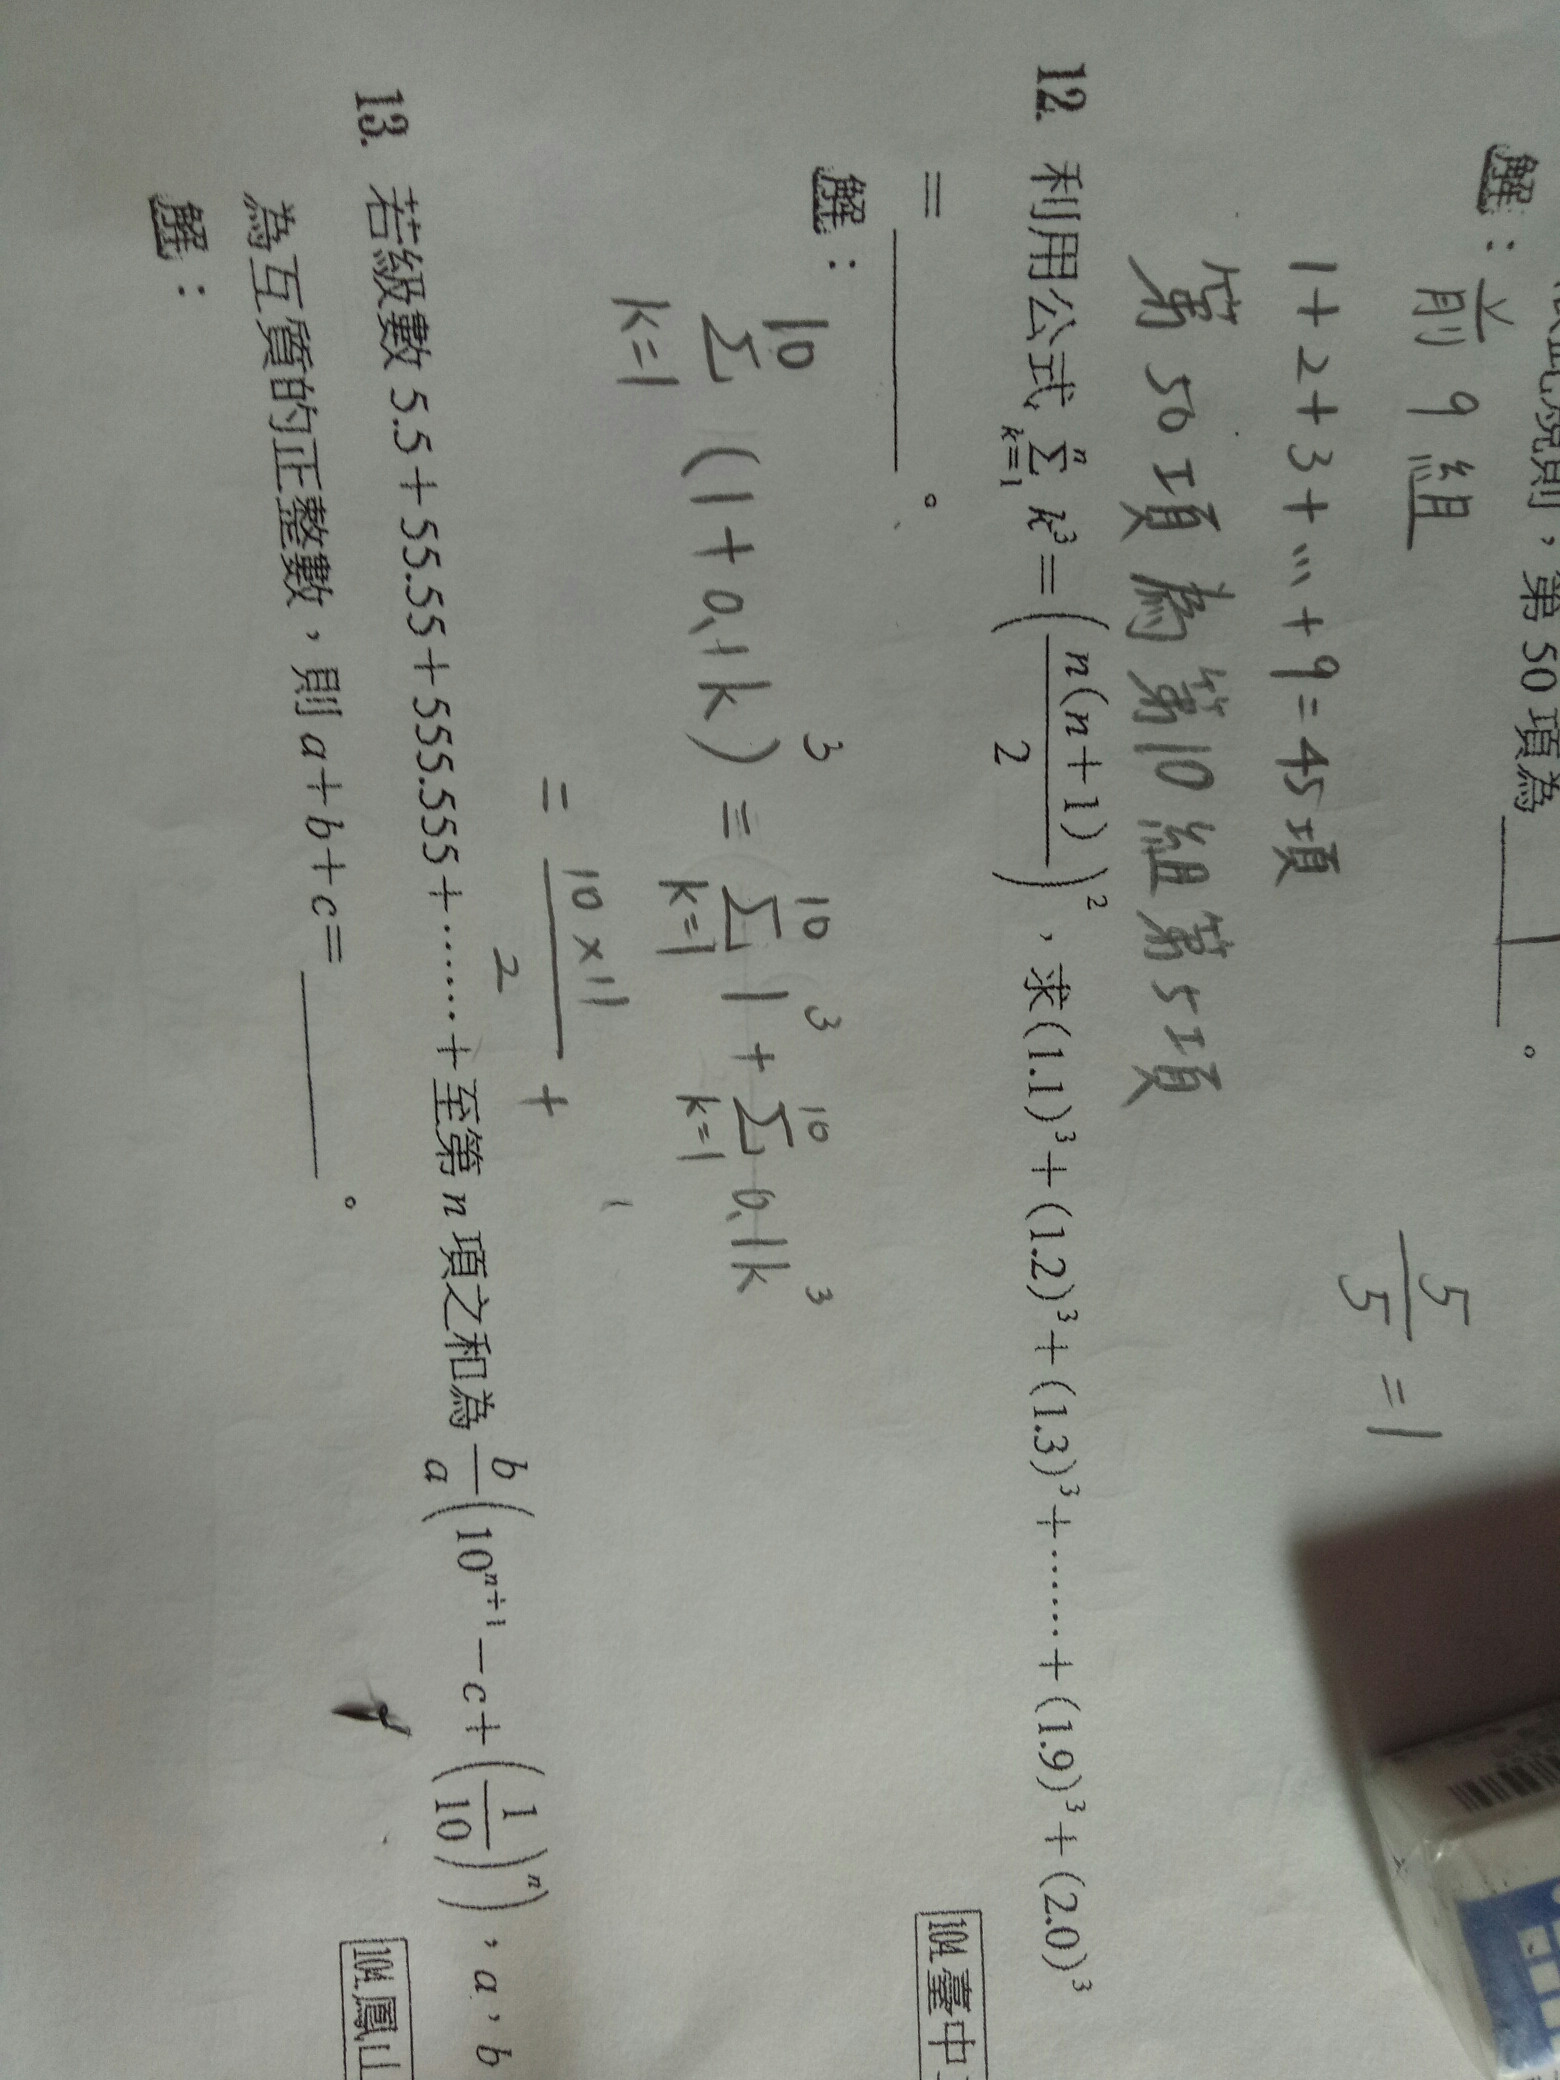 規則，第50項為 1 。
解：前9組
1+2+3+…+9=45項
5/5 =1
第50項為第10組第5項
12. 利用公式 \sum_{k=1}^{n} k³=(n(n+1)/2)²，求(1.1)³+(1.2)³+(1.3)³+……+(1.9)³+(2.0)³
=________。
104.臺中
解：
\sum_{k=1}^{10} (1+0.1k)³ = \sum_{k=1}^{10} 1³ + \sum_{k=1}^{10} 0.1k³
= 10×11/2 +
13. 若級數5.5+55.55+555.555+……+至第n項之和為 b/a (10ⁿ⁺¹−c+(1/10)ⁿ)，a，b
為互質的正整數，則a+b+c=________。
104.鳳山
解：